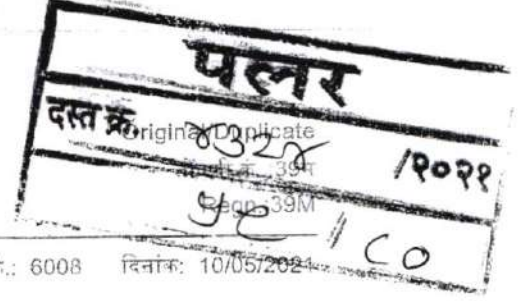 पलर
दस्त क्र. ४३२४ /२०२१
Original/Duplicate
39म
Regn.:39M
५९ / ८०
6008 दिनांक: 10/05/2021